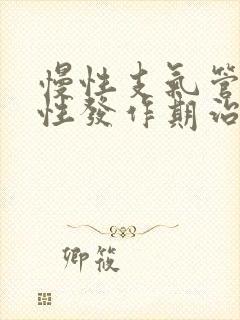 慢性支氣管
性發作期治
卿筱